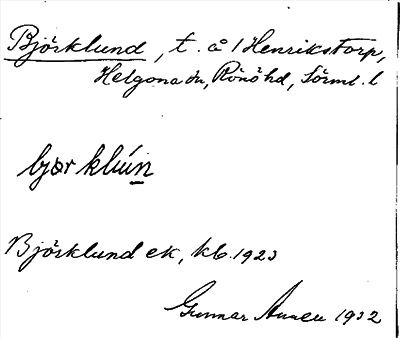 Björklund, t. å l Henrikstorp,
Helgona sn, Rönö hd, Sörml. l
bjœr klún
Björklund ek, kb. 1923
Gunnar 1932